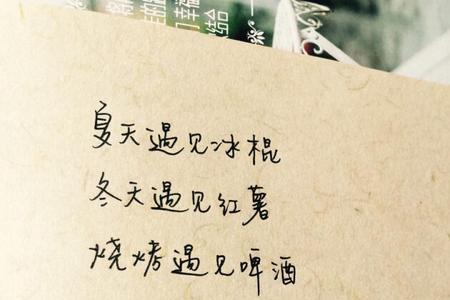 夏天遇见冰棍
冬天遇见红薯
烧烤遇见啤酒